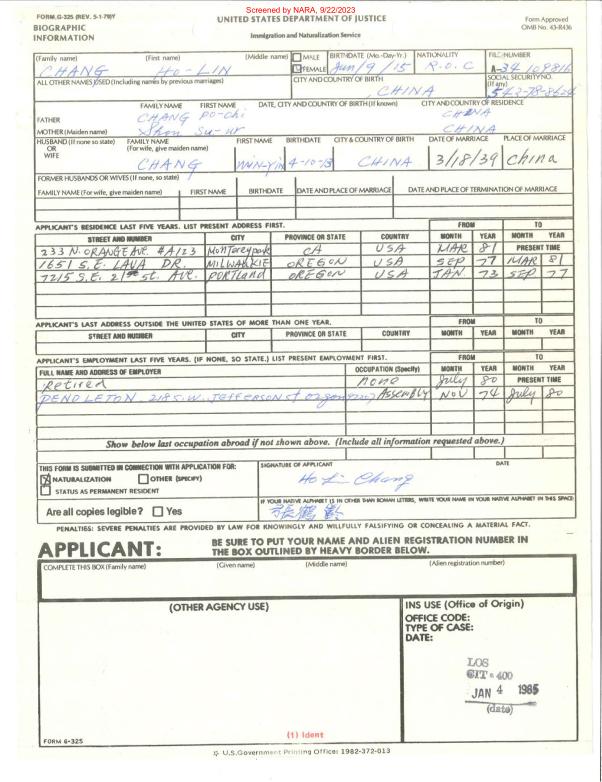 Screened by NARA, 9/22/2023
FORM G-325 (REV. 5-1-79)Y
BIOGRAPHIC
INFORMATION
UNITED STATES DEPARTMENT OF JUSTICE
Immigration and Naturalization Service
Form Approved
OMB No. 43-R436
(Family name) (First name) (Middle name) MALE FEMALE BIRTHDATE (Mo.-Day-Yr.) NATIONALITY FILE NUMBER
CHANG HO-LIN Jun/9/15 R.O.C A-34 109816
ALL OTHER NAMES USED (Including names by previous marriages) CITY AND COUNTRY OF BIRTH SOCIAL SECURITY NO. (If any)
CHINA 542-78-8624
FAMILY NAME FIRST NAME DATE, CITY AND COUNTRY OF BIRTH (If known) CITY AND COUNTRY OF RESIDENCE
FATHER CHANG PO-Chi CHINA
MOTHER (Maiden name) Shou Su-ur CHINA
HUSBAND (If none so state) OR WIFE FAMILY NAME (For wife, give maiden name) FIRST NAME BIRTHDATE CITY & COUNTRY OF BIRTH DATE OF MARRIAGE PLACE OF MARRIAGE
CHANG 4-10-13 CHINA 3/18/39 China
FORMER HUSBANDS OR WIVES (If none, so state)
FAMILY NAME (For wife, give maiden name) FIRST NAME BIRTHDATE DATE AND PLACE OF MARRIAGE DATE AND PLACE OF TERMINATION OF MARRIAGE
APPLICANT'S RESIDENCE LAST FIVE YEARS. LIST PRESENT ADDRESS FIRST. FROM TO
STREET AND NUMBER CITY PROVINCE OR STATE COUNTRY MONTH YEAR MONTH YEAR
233 N. ORANGE AVE. #A123 Monterey park CA USA MAR 81 PRESENT TIME
1651 S.E. LAVA DR. MILWAUKIE OREGON USA SEP 77 MAR 81
7215 S.E. 21st St. AVE. PORTLAND OREGON USA JAN. 73 SEP 77
APPLICANT'S LAST ADDRESS OUTSIDE THE UNITED STATES OF MORE THAN ONE YEAR. FROM TO
STREET AND NUMBER CITY PROVINCE OR STATE COUNTRY MONTH YEAR MONTH YEAR
APPLICANT'S EMPLOYMENT LAST FIVE YEARS. (IF NONE, SO STATE.) LIST PRESENT EMPLOYMENT FIRST. FROM TO
FULL NAME AND ADDRESS OF EMPLOYER OCCUPATION (Specify) MONTH YEAR MONTH YEAR
Retired none July 80 PRESENT TIME
PENDLETON 218 S.W. JEFFERSON St Assembly NOV 74 July 80
Show below last occupation abroad if not shown above. (Include all information requested above.)
THIS FORM IS SUBMITTED IN CONNECTION WITH APPLICATION FOR: SIGNATURE OF APPLICANT DATE
NATURALIZATION OTHER (SPECIFY)
STATUS AS PERMANENT RESIDENT
Ho Lin Chang
Are all copies legible? Yes
IF YOUR NATIVE ALPHABET IS IN OTHER THAN ROMAN LETTERS, WRITE YOUR NAME IN YOUR NATIVE ALPHABET IN THIS SPACE:
張鶴
PENALTIES: SEVERE PENALTIES ARE PROVIDED BY LAW FOR KNOWINGLY AND WILLFULLY FALSIFYING OR CONCEALING A MATERIAL FACT.
APPLICANT: BE SURE TO PUT YOUR NAME AND ALIEN REGISTRATION NUMBER IN
THE BOX OUTLINED BY HEAVY BORDER BELOW.
COMPLETE THIS BOX (Family name) (Given name) (Middle name) (Alien registration number)
(OTHER AGENCY USE)
INS USE (Office of Origin)
OFFICE CODE:
TYPE OF CASE:
DATE:
LOS
CIT - 400
JAN 4 1985
(date)
(1) Ident
FORM G-325
U.S. Government Printing Office: 1982-372-013